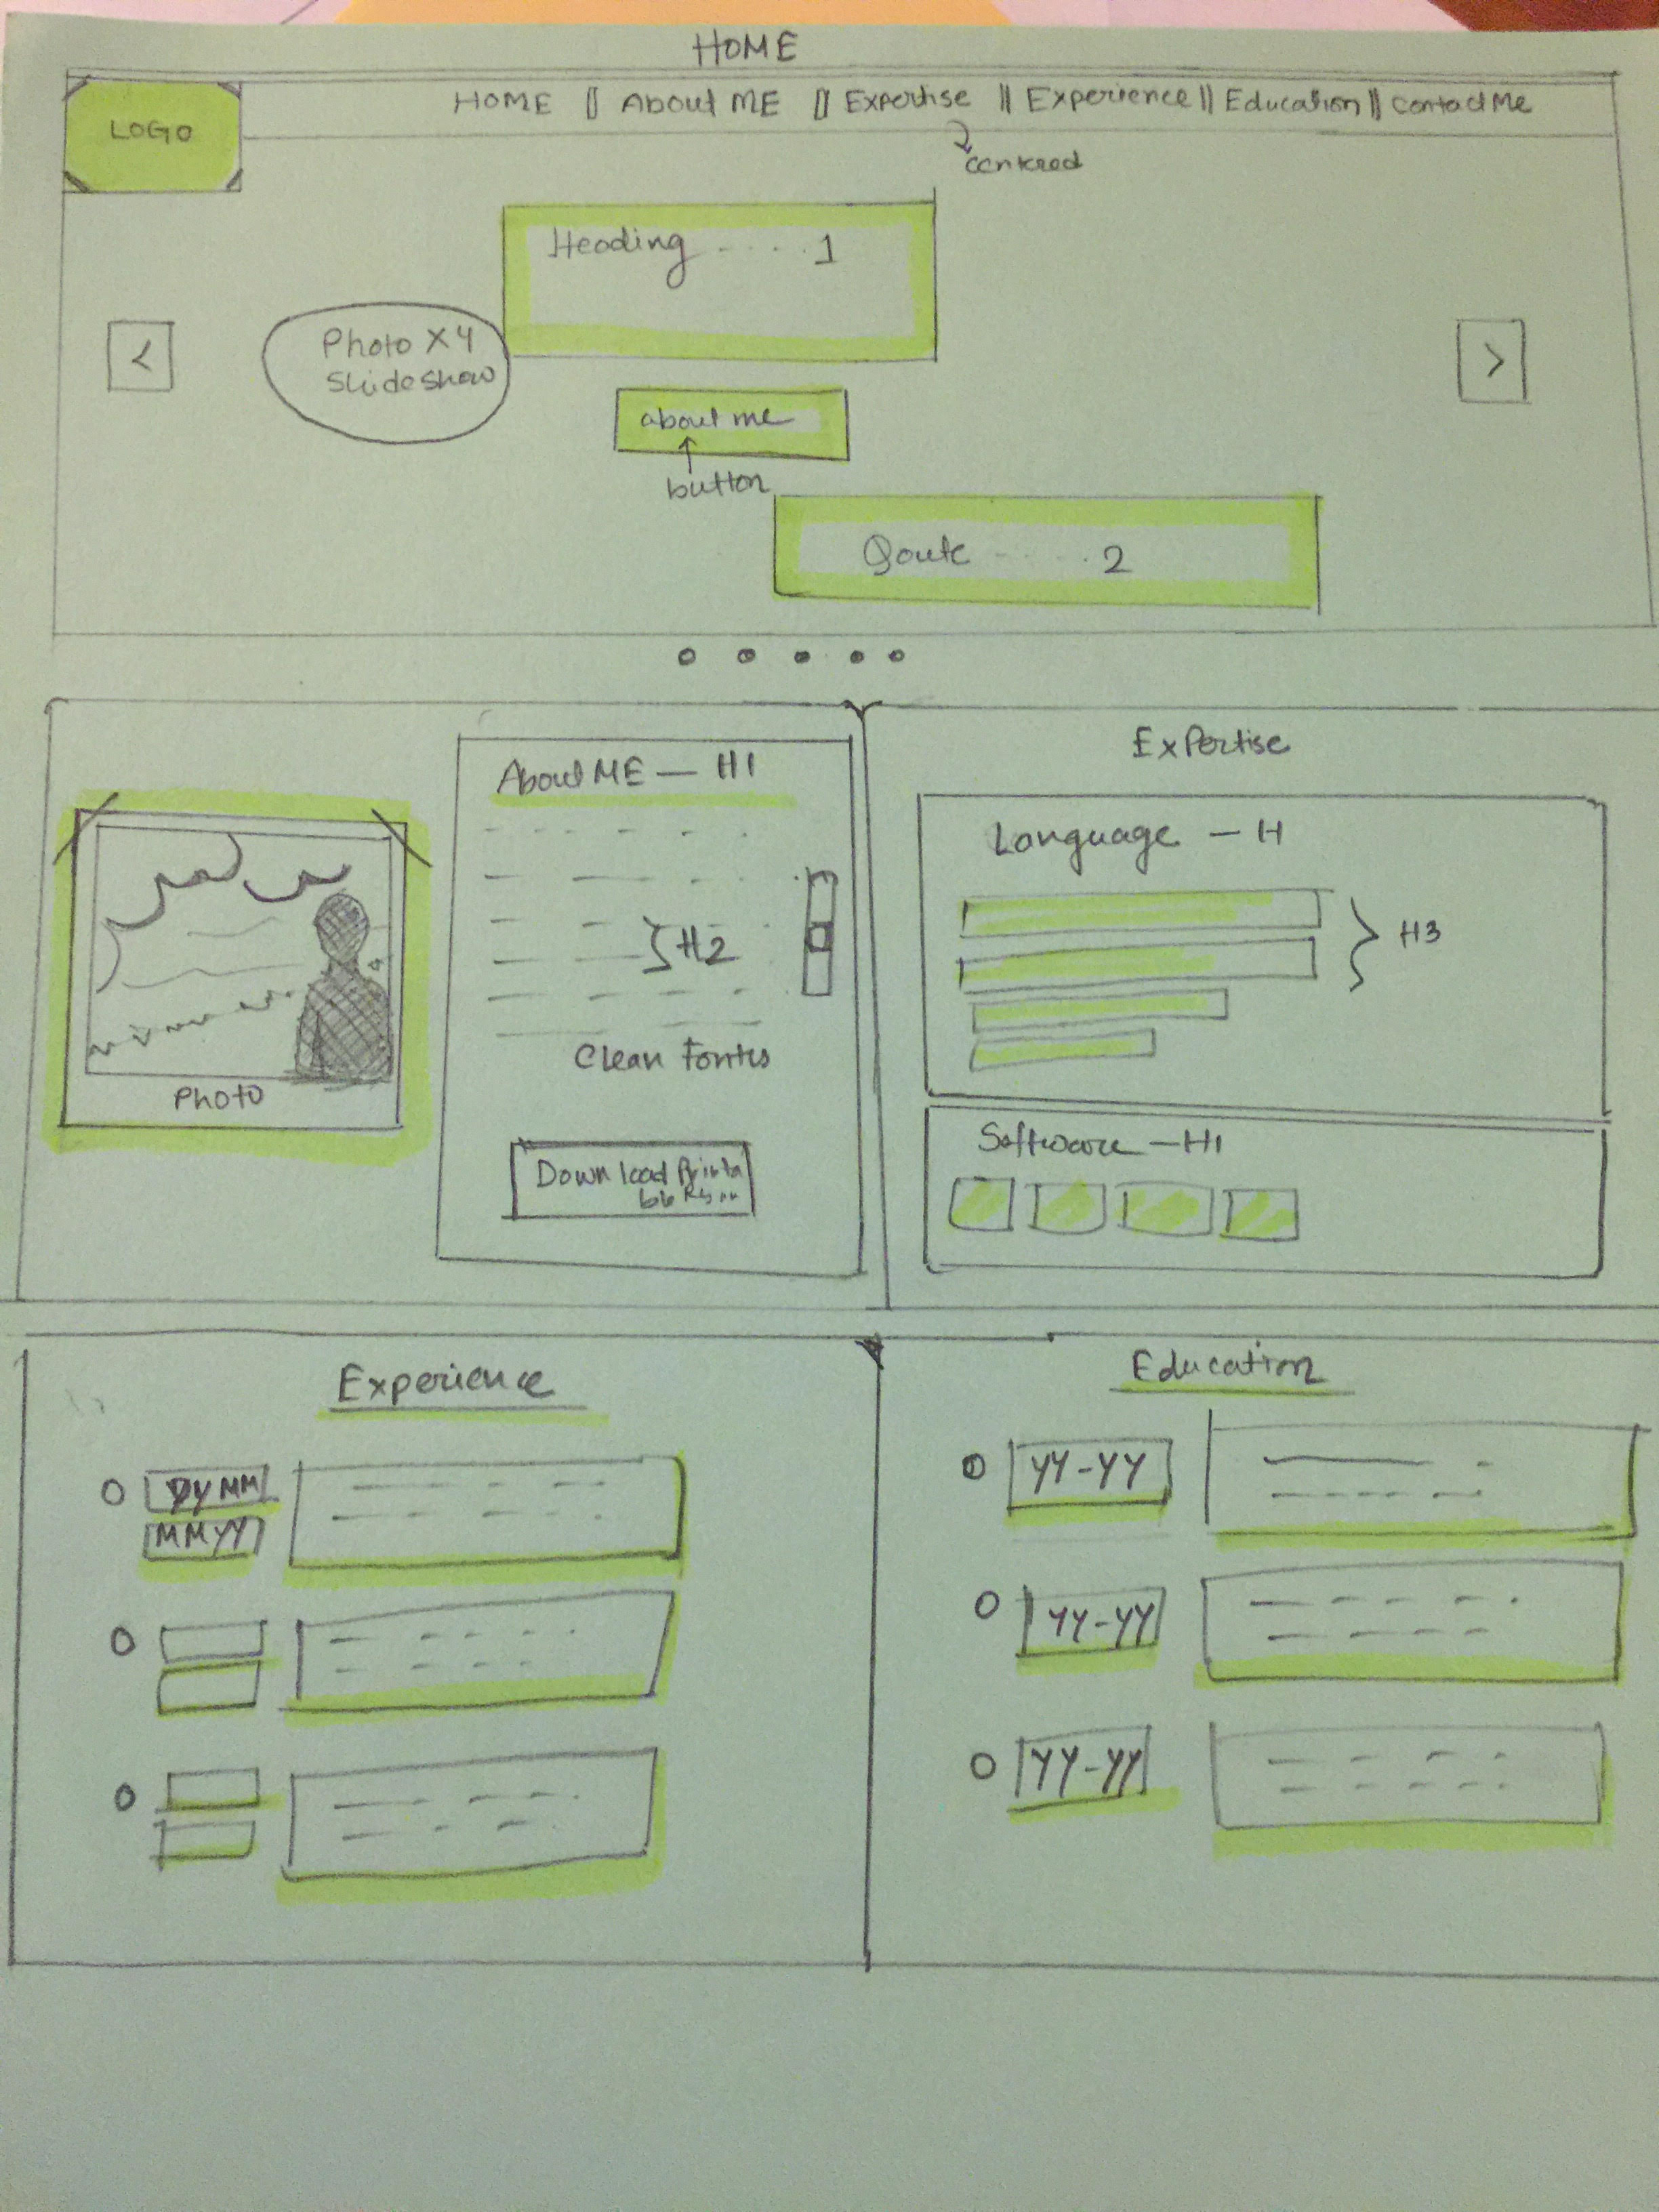 HOME
LOGO
HOME || About ME || Expertise || Experience || Education || Contact Me
centred
Heading ---- 1
<
Photo X4
Slideshow
>
about me
button
Qoute ----- 2
About ME — H1
H2
Clean Fontes
Download Printa
Photo
Expertise
Language — H
H3
Software — H1
Experience
MM
MMYY
Education
YY-YY
YY-YY
YY-YY